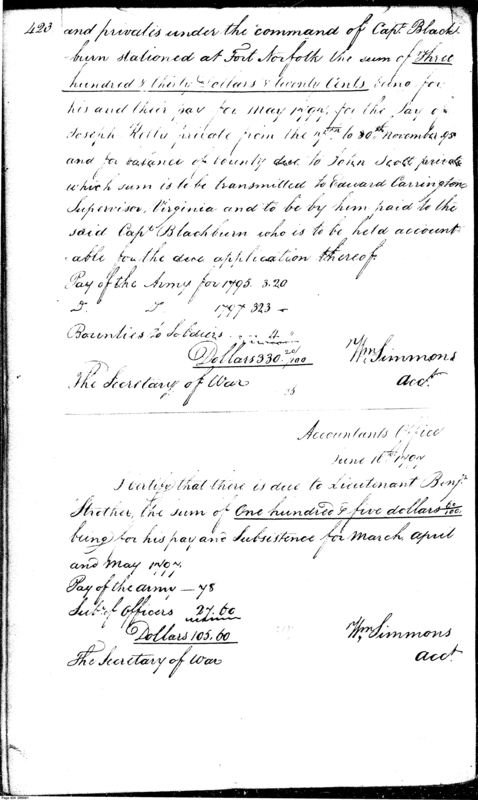 423 and privates under the command of Capt. Black-
burn stationed at Fort Norfolk the sum of Three
hundred & thirty Dollars & twenty Cents being for
his and their pay for May 1797, for the Pay of
Joseph Kelly private from the to 30th November 95
and for balance of bounty due to John Scott private
which sum is to be transmitted to Edward Carrington
Supervisor, Virginia and to be by him paid to the
said Capt. Blackburn who is to be held account
able for the due application thereof.
Pay of the Army for 1795. 3.20
D. D. 1797 323 -
Bounties to Soldiers 4 "
Dollars 330.20/100 Wm. Simmons
The Secretary of War acct.
Accountants Office
June 16th 1797
I certify that there is due to Lieutenant Benj.
Strother, the sum of One hundred & five dollars 60/100
being for his pay and Subsistence for March, April
and May 1797.
Pay of the army - 78
Subs. of Officers 27.60
Dollars 105.60 Wm. Simmons
The Secretary of War acct.